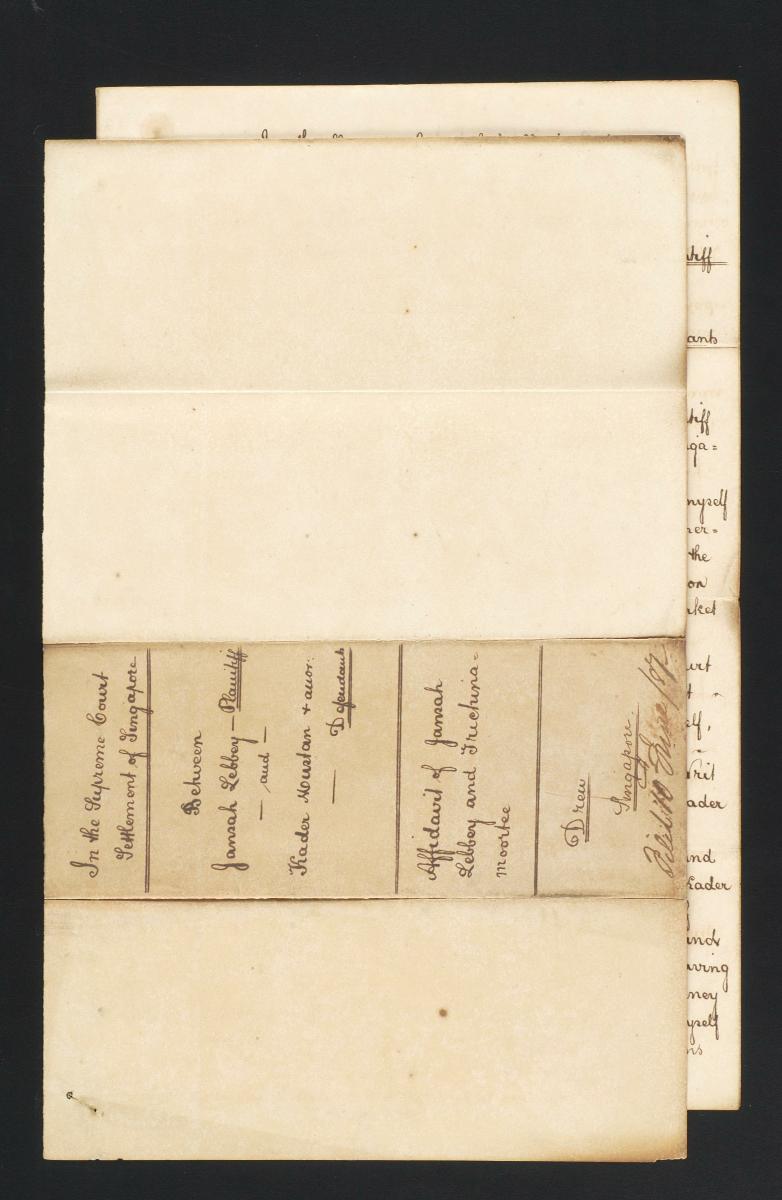 In the Supreme Court
Settlement of Singapore
Between
Jansah Lebbey — Plaintiff
— and —
Kader Moustan & anor.
— Defendants
Affidavit of Jansah
Lebbey and Trichina-
moortee
Drew
Singapore
Filed 10 June
tiff
ants
tiff
ga=
myself
ner=
the
on
ket
urt
t
elf,
Writ
ader
and
Kader
and
aving
ney
yself
ns